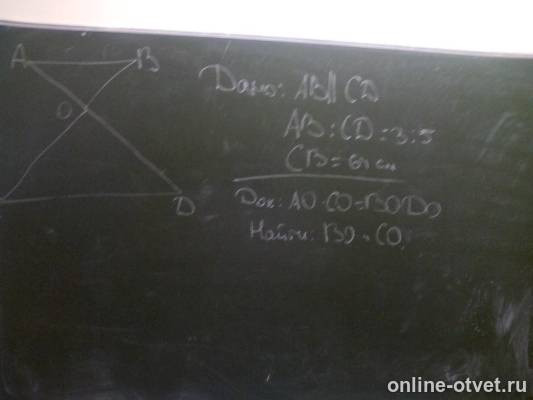 A B
Дано: AB || CD
O
AB : CD = 3 : 5
CB = 64 см
D
Док: AO · CO = BO · DO
Найти: BO и CO
online-otvet.ru